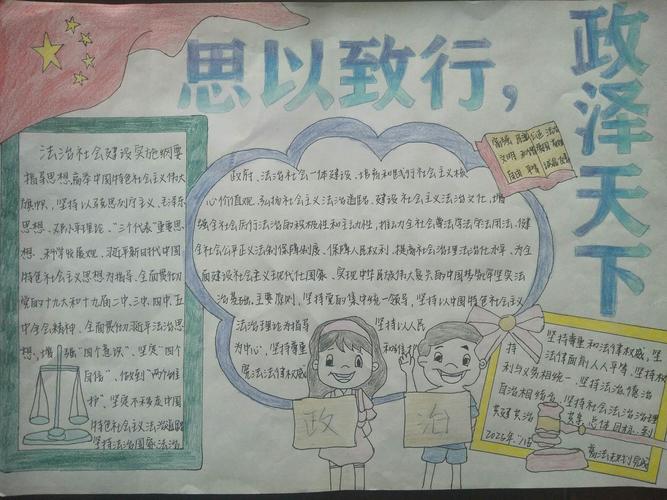 思以致行，
政泽天下
法治社会建设实施纲要
指导思想，高举中国特色社会主义伟大
旗帜，坚持以马克思列宁主义、毛泽东
思想、邓小平理论、"三个代表"重要思
想、科学发展观、习近平新时代中国
特色社会主义思想为指导，全面贯彻
党的十九大和十九届二中、三中、四中、五
中全会精神，全面贯彻习近平法治思
想，增强"四个意识"、坚定"四个
自信"、做到"两个维
护"，坚定不移走中国
特色社会主义法治道路
坚持法治国家、法治
政府、法治社会一体建设，培育和践行社会主义核
心价值观，弘扬社会主义法治精神，建设社会主义法治文化，增
强全社会厉行法治的积极性和主动性，推动全社会尊法学法守法用法，健
全社会公平正义法治保障制度，保障人民权利，提高社会治理法治化水平，为全
面建设社会主义现代化国家、实现中华民族伟大复兴的中国梦筑牢坚实法
治基础，主要原则，坚持党的集中统一领导，坚持以中国特色社会主义
法治理论为指导 坚持以人民
为中心，坚持尊重 和维护
宪法法律权威
富强 民主 公正 法治
文明 和谐 爱国 敬业
自由 平等 诚信 友善
政
治
坚持尊重和法律权威，坚
持 法律面前人人平等，坚持权
利与义务相统一，坚持法治、德治
自治相结合，坚持社会法治治理
共建共治 共享 总体目标，到
2025年，"八五"
普法规划完成